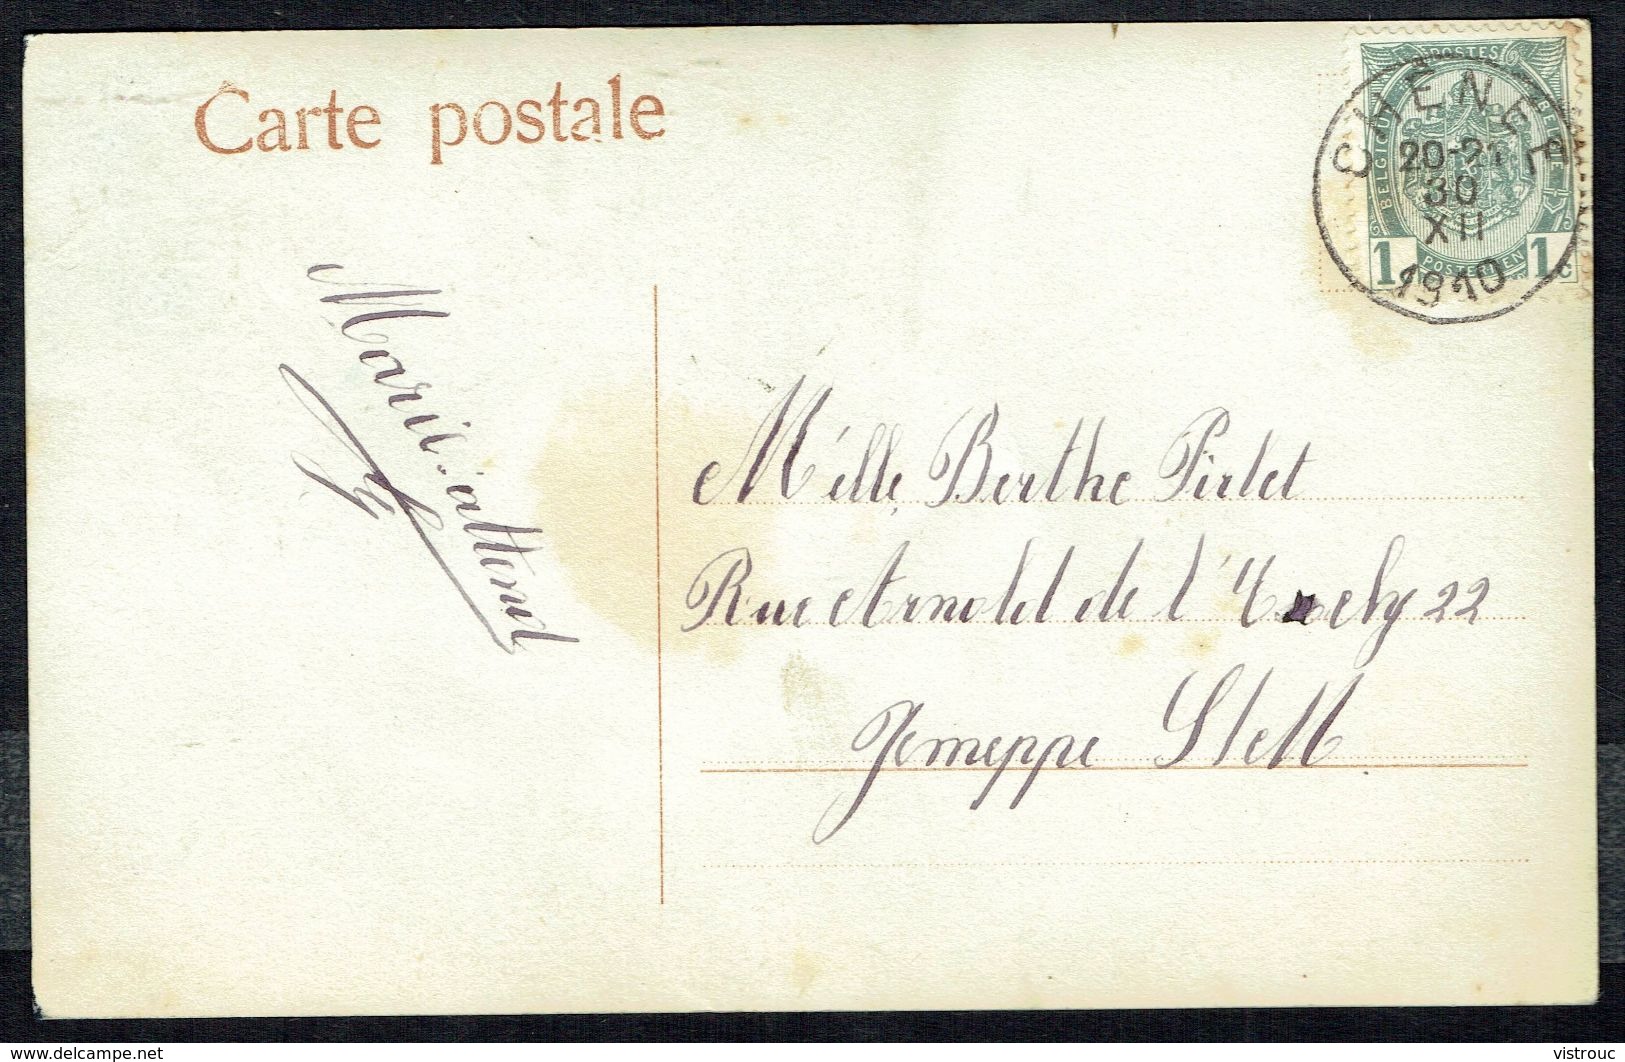 Carte postale
POSTES
BELGIQUE
BELGIE
CHENEE
20-21
30
XII
1910
1 POSTERIJEN 1c
Mlle Berthe Pirlet
Rue Arnold de l' 22
Jemeppe s/M
Marie attend
© www.delcampe.net
vistrouc